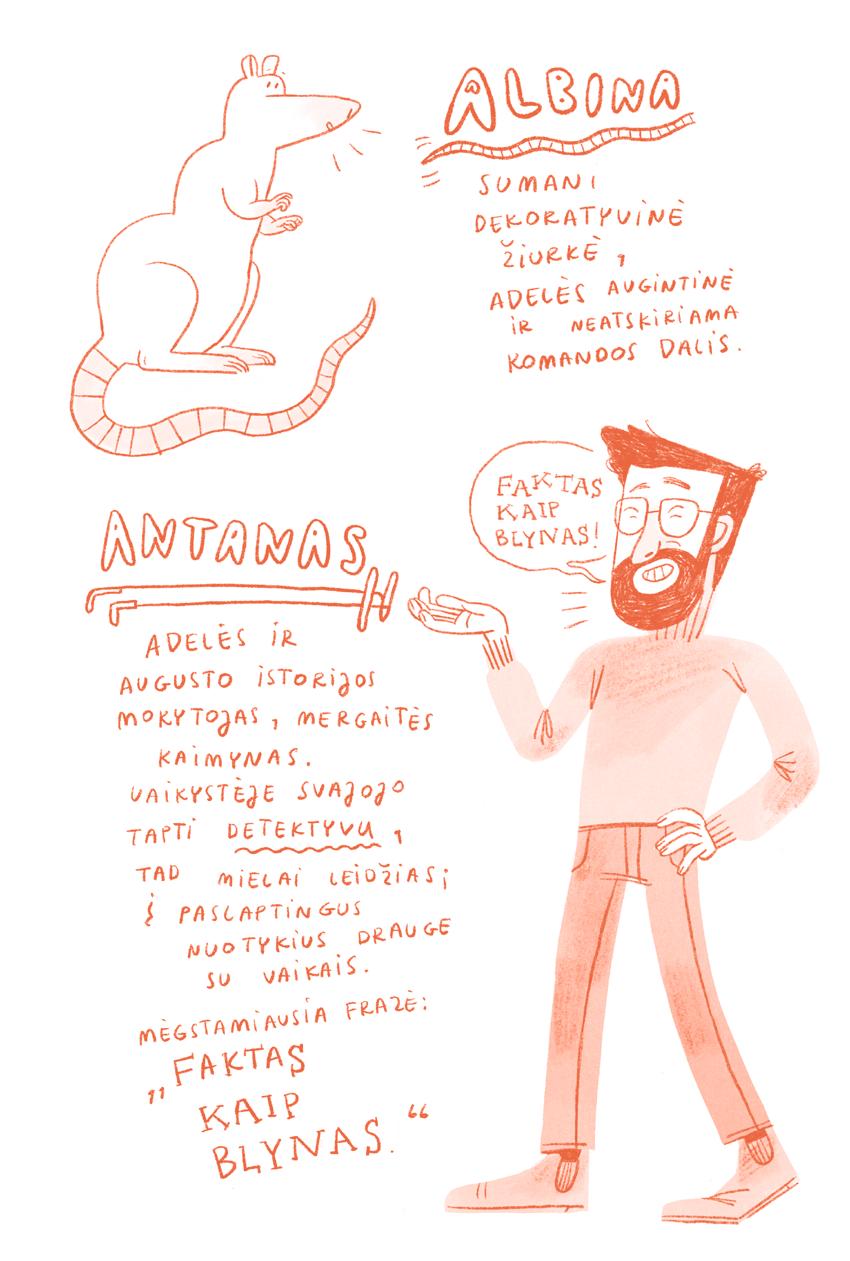 ALBINA
SUMANI
DEKORATYVINĖ
ŽIURKĖ,
ADELĖS AUGINTINĖ
IR NEATSKIRIAMA
KOMANDOS DALIS.
FAKTAS
KAIP
BLYNAS!
ANTANAS
ADELĖS IR
AUGUSTO ISTORIJOS
MOKYTOJAS, MERGAITĖS
KAIMYNAS.
VAIKYSTĖJE SVAJOJO
TAPTI DETEKTYVU,
TAD MIELAI LEIDŽIASI
Į PASLAPTINGUS
NUOTYKIUS DRAUGE
SU VAIKAIS.
MĖGSTAMIAUSIA FRAZĖ:
„FAKTAS
KAIP
BLYNAS.“